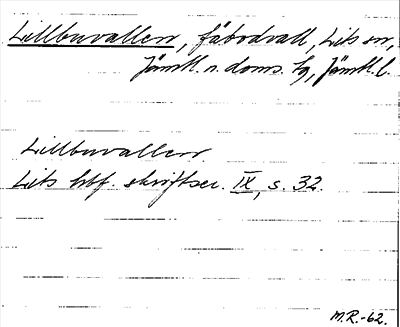 Lillbuvallen, fäbodvall, Lits sn,
Jämtl. n. doms. tg, Jämtl. l.
Lillbuvallen.
Lits hbf. skriftser. IX, s. 32.
M.R.-62.